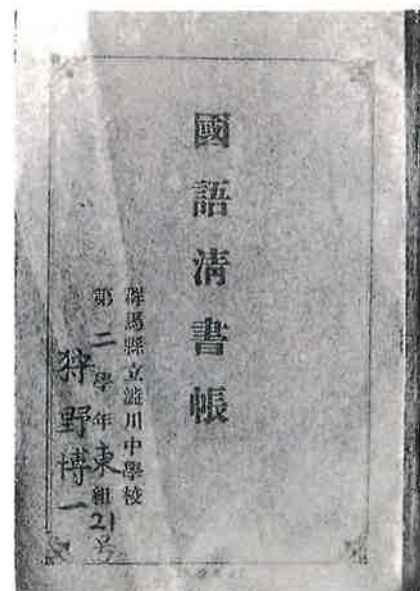 國語清書帳
群馬縣立澁川中學校
第二學年東組21号
狩野博一